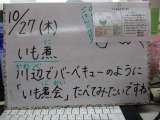 10/27(木)
いも煮
かわべ
川辺でバーベキューのように
「いも煮会」たべてみたいですね